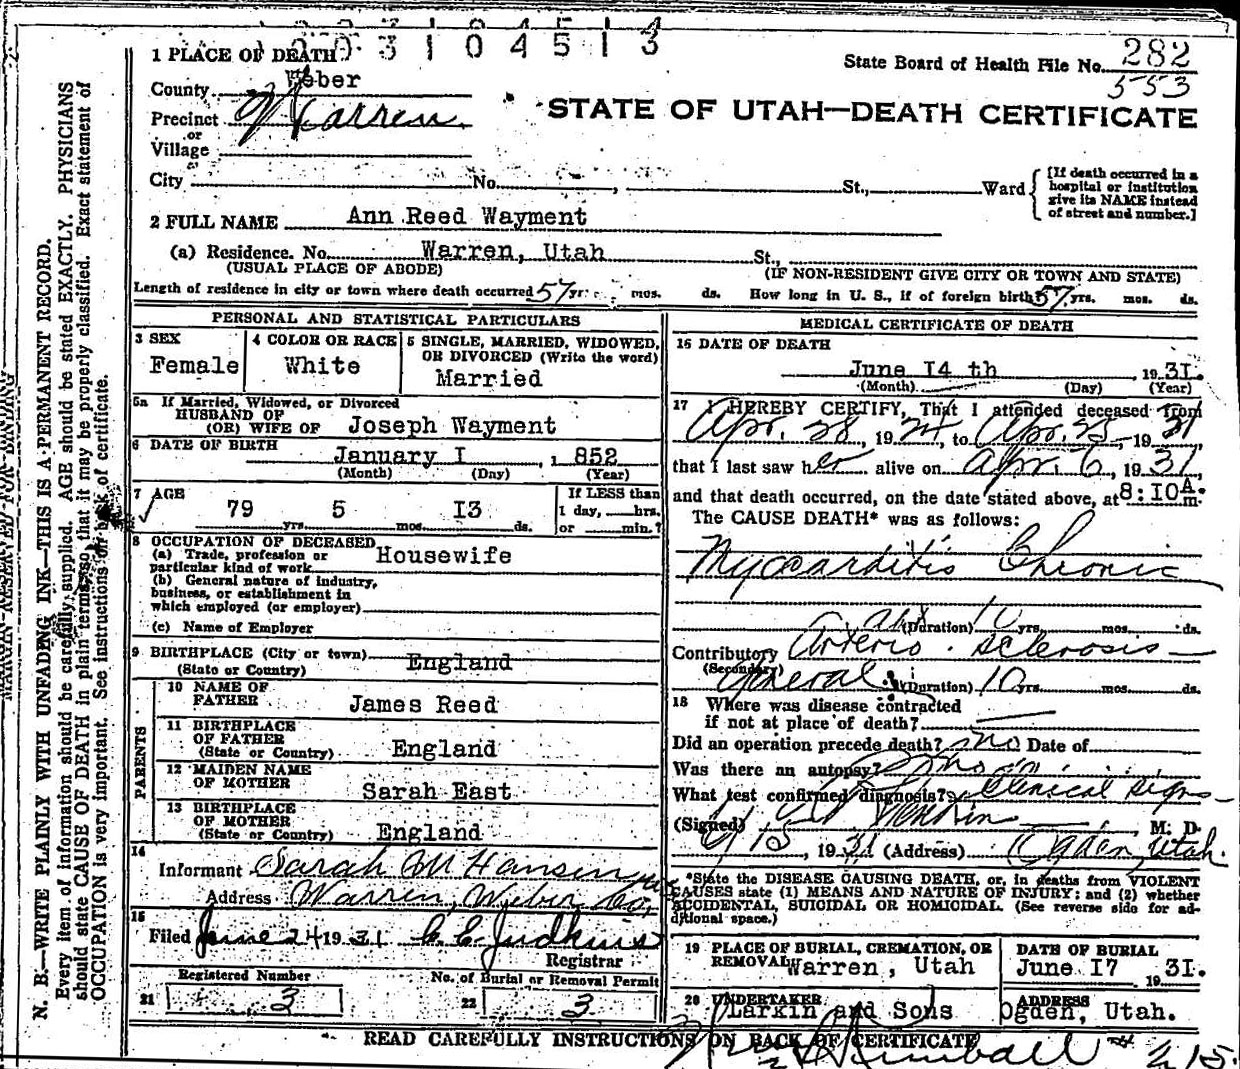 2 0 0 3 1 0 4 5 1 3
State Board of Health File No. 282
553
STATE OF UTAH—DEATH CERTIFICATE
1 PLACE OF DEATH
County Weber
Precinct Warren
or
Village
City No. , St., Ward
[If death occurred in a
hospital or institution
give its NAME instead
of street and number.]
2 FULL NAME Ann Reed Wayment
(a) Residence. No. Warren, Utah St.,
(USUAL PLACE OF ABODE) (IF NON-RESIDENT GIVE CITY OR TOWN AND STATE)
Length of residence in city or town where death occurred 57 yrs. mos. ds. How long in U. S., if of foreign birth? 57 yrs. mos. ds.
PERSONAL AND STATISTICAL PARTICULARS
3 SEX
Female
4 COLOR OR RACE
White
5 SINGLE, MARRIED, WIDOWED,
OR DIVORCED (Write the word)
Married
5a If Married, Widowed, or Divorced
HUSBAND OF
(OR) WIFE OF Joseph Wayment
6 DATE OF BIRTH
January I , 1 852
(Month) (Day) (Year)
7 AGE
79 yrs. 5 mos. I3 ds.
If LESS than
1 day, hrs.
or min.?
8 OCCUPATION OF DECEASED
(a) Trade, profession or
particular kind of work Housewife
(b) General nature of industry,
business, or establishment in
which employed (or employer)
(c) Name of Employer
9 BIRTHPLACE (City or town)
(State or Country) England
PARENTS
10 NAME OF
FATHER James Reed
11 BIRTHPLACE
OF FATHER
(State or Country) England
12 MAIDEN NAME
OF MOTHER Sarah East
13 BIRTHPLACE
OF MOTHER
(State or Country) England
14
Informant Sarah M Hansen
Address Warren, Weber Co,
15
Filed June 24 1931 C. E. Judkins
Registrar
Registered Number
21 3
No. of Burial or Removal Permit
22 3
MEDICAL CERTIFICATE OF DEATH
16 DATE OF DEATH
June I4 th , 19 3I.
(Month) (Day) (Year)
17 I HEREBY CERTIFY, That I attended deceased from
Apr. 28, 1924, to Apr. 25, 1931
that I last saw her alive on Apr. 6, 1931,
and that death occurred, on the date stated above, at 8:I0A. m.
The CAUSE DEATH* was as follows:
Myocarditis Chronic
abt (Duration) 10 yrs. mos. ds.
Contributory Arterio. sclerosis
(Secondary) General (Duration) 10 yrs. mos. ds.
18 Where was disease contracted
if not at place of death?
Did an operation precede death? no Date of
Was there an autopsy? no
What test confirmed diagnosis? Clinical signs
(Signed) , M. D.
6/15, 1931 (Address) Ogden, Utah.
*State the DISEASE CAUSING DEATH, or, in deaths from VIOLENT
CAUSES state (1) MEANS AND NATURE OF INJURY; and (2) whether
ACCIDENTAL, SUICIDAL OR HOMICIDAL. (See reverse side for ad-
ditional space.)
19 PLACE OF BURIAL, CREMATION, OR
REMOVAL Warren, Utah
DATE OF BURIAL
June I7 19 3I.
20 UNDERTAKER
Larkin and Sons
ADDRESS
Ogden, Utah.
READ CAREFULLY INSTRUCTIONS ON BACK OF CERTIFICATE
Kimball # 215.
MARGIN RESERVED FOR BINDING
N. B.—WRITE PLAINLY WITH UNFADING INK—THIS IS A PERMANENT RECORD.
Every item of information should be carefully supplied. AGE should be stated EXACTLY. PHYSICIANS
should state CAUSE OF DEATH in plain terms, so that it may be properly classified. Exact statement of
OCCUPATION is very important. See instructions on back of certificate.